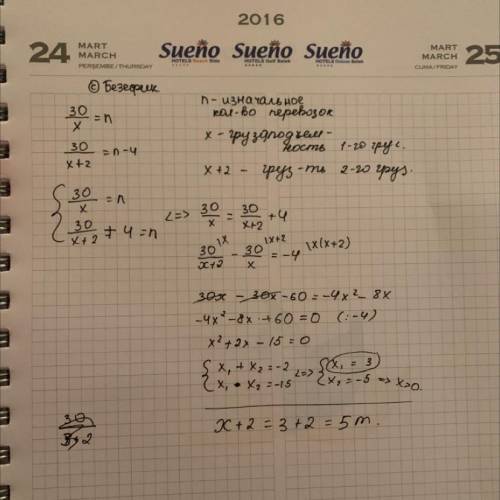 2016
24 MART MARCH PERŞEMBE / THURSDAY
Sueno HOTELS Beach Side
Sueno HOTELS Golf Belek
Sueno HOTELS Deluxe Belek
MART MARCH CUMA / FRIDAY 25
© Безефник
30/x = n
30/(x+2) = n-4
{ 30/x = n
{ 30/(x+2) + 4 = n
n - изначальное
кол-во перевозок
x - грузоподъем-
ность 1-го груз.
x+2 - груз-ть 2-го груз.
<=> 30/x = 30/(x+2) + 4
30/(x+2) |x - 30/x |x+2 = -4 |x(x+2)
30x - 30x - 60 = -4x² - 8x
-4x² - 8x + 60 = 0 (:-4)
x² + 2x - 15 = 0
{ x₁ + x₂ = -2 <=> { x₁ = 3
{ x₁ • x₂ = -15 { x₂ = -5 => x>0.
x+2 = 3+2 = 5 т.